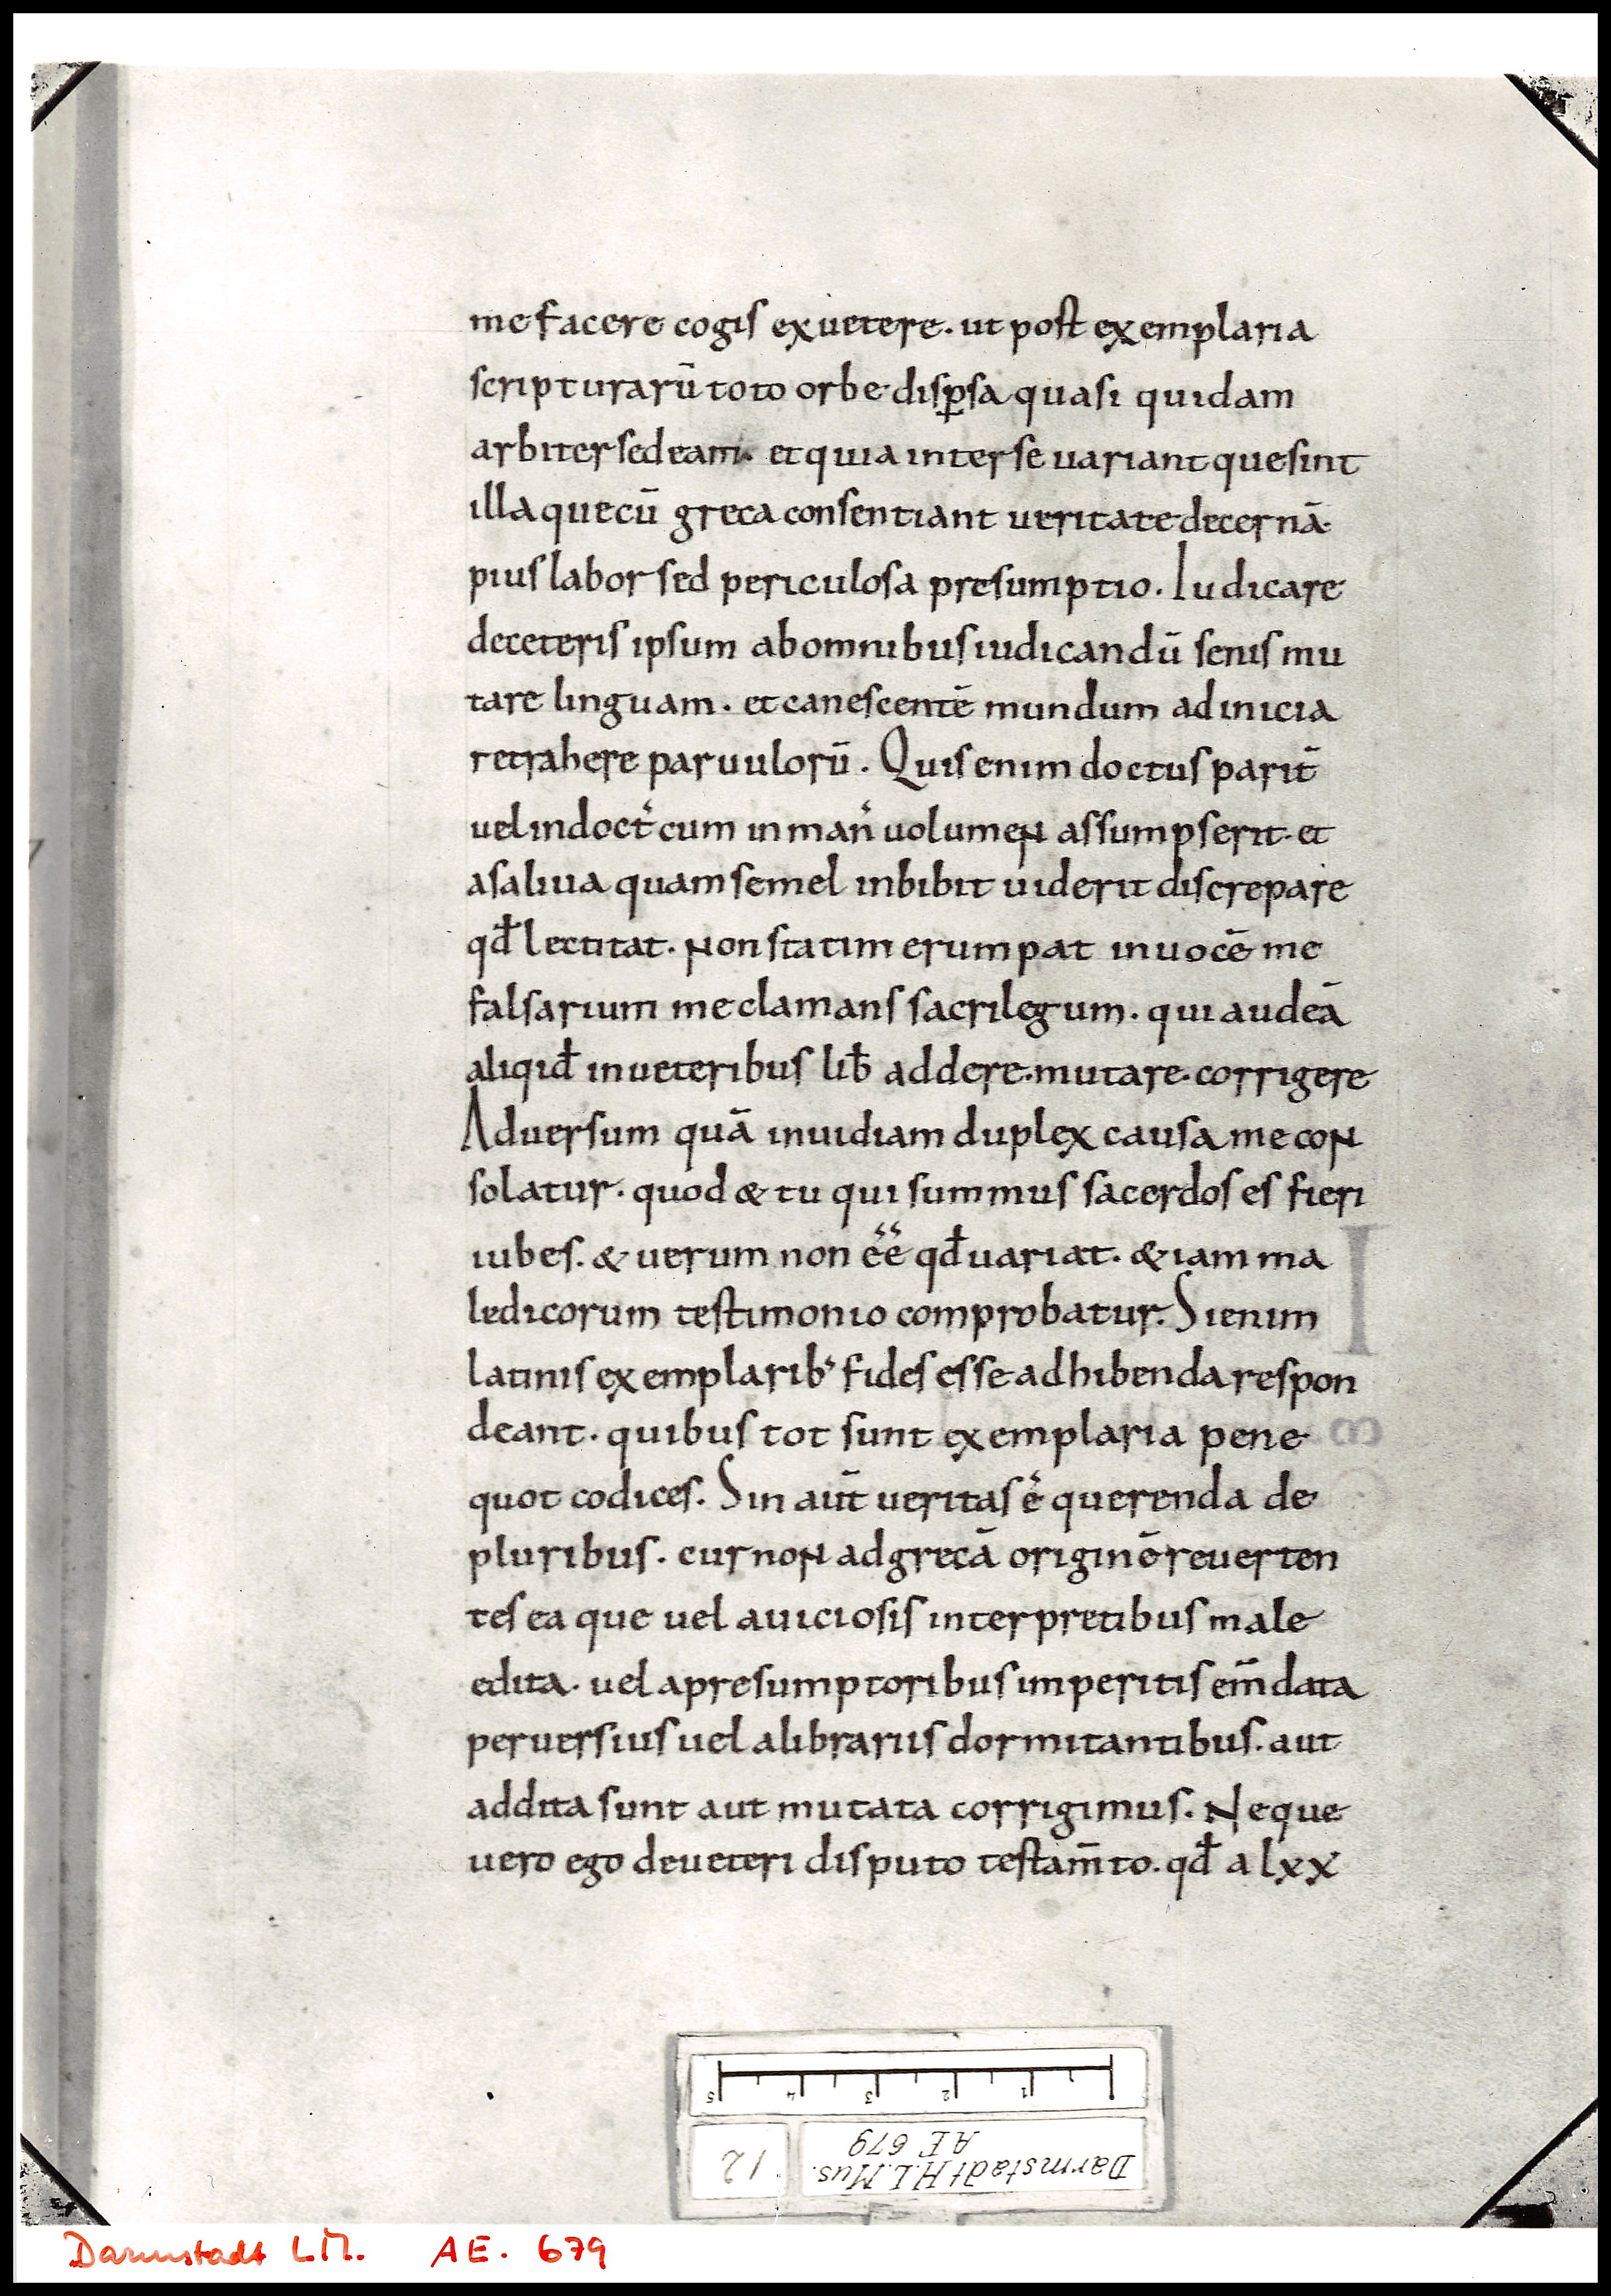 me facere cogis ex uetere. ut post exemplaria
scripturarū toto orbe disꝑsa quasi quidam
arbiter sedeam. et quia inter se uariant que sint
illa que cū greca consentiant ueritate decernā.
pius labor sed periculosa presumptio. Iudicare
de ceteris ipsum ab omnibus iudicandū senis mu
tare linguam. et canescentē mundum ad inicia
retrahere paruulorū. Quis enim doctus parit̄
uel indoct᾽ cum in man᾽ uolumen assumpserit. et
a saliua quam semel inbibit uiderit discrepare
qđ lectitat. Non statim erumpat in uocē me
falsarium me clamans sacrilegum. qui audeā
aliqiđ in ueteribus lib̄ addere. mutare. corrigere
Aduersum quā inuidiam duplex causa me con
solatur. quod & tu qui summus sacerdos es fieri
iubes. & uerum non ēē qđ uariat. & iam ma
ledicorum testimonio comprobatur. Si enim
latinis exemplarib᾽ fides esse adhibenda respon
deant. quibus tot sunt exemplaria pene
quot codices. Sin aūt ueritas ē querenda de
pluribus. cur non ad grecā originē reuerten
tes ea que uel a uiciosis interpretibus male
edita. uel a presumptoribus imperitis em̄data
peruersius uel a librariis dormitantibus. aut
addita sunt aut mutata corrigimus. Neque
uero ego de ueteri disputo testam̄to. qđ a lxx
5 4 3 2 1
Darmstadt H.L.Mus.
AE 679
12
Darmstadt LM. AE. 679